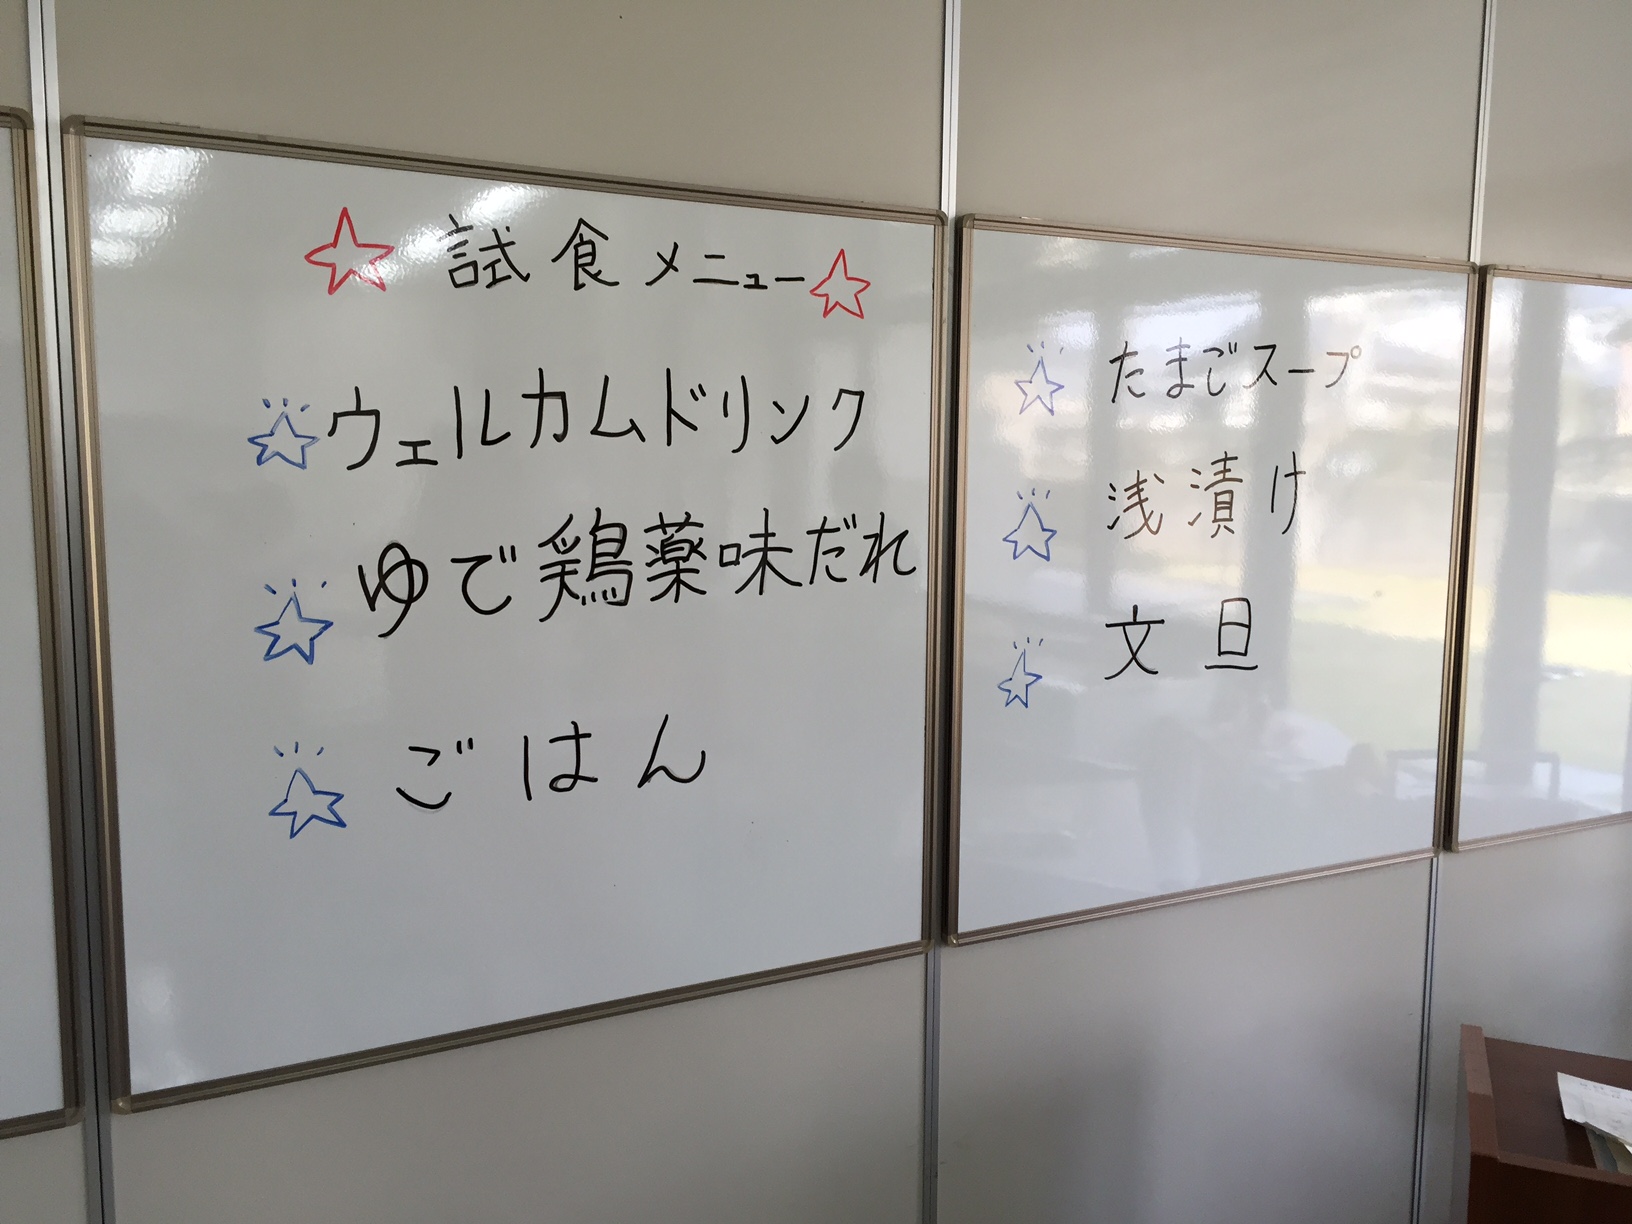 試食メニュー
ウェルカムドリンク
ゆで鶏薬味だれ
ごはん
たまごスープ
浅漬け
文旦